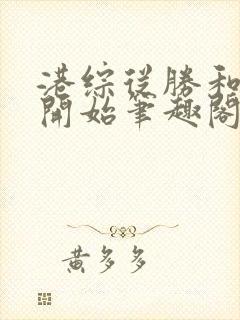 港綜從勝和
開始筆趣閣
黃多多